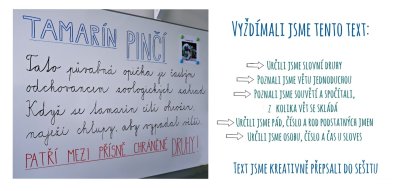 TAMARÍN PINČÍ
Tato půvabná opička je častým
odchovancem zoologických zahrad.
Když se tamarín cítí ohrožen,
naježí chlupy, aby vypadal větší.
PATŘÍ MEZI PŘÍSNĚ CHRÁNĚNÉ DRUHY!
Vyždímali jsme tento text:
Určili jsme slovní druhy
Poznali jsme větu jednoduchou
Poznali jsme souvětí a spočítali,
z kolika vět se skládá
Určili jsme pád, číslo a rod podstatných jmen
Určili jsme osobu, číslo a čas u sloves
Text jsme kreativně přepsali do sešitu